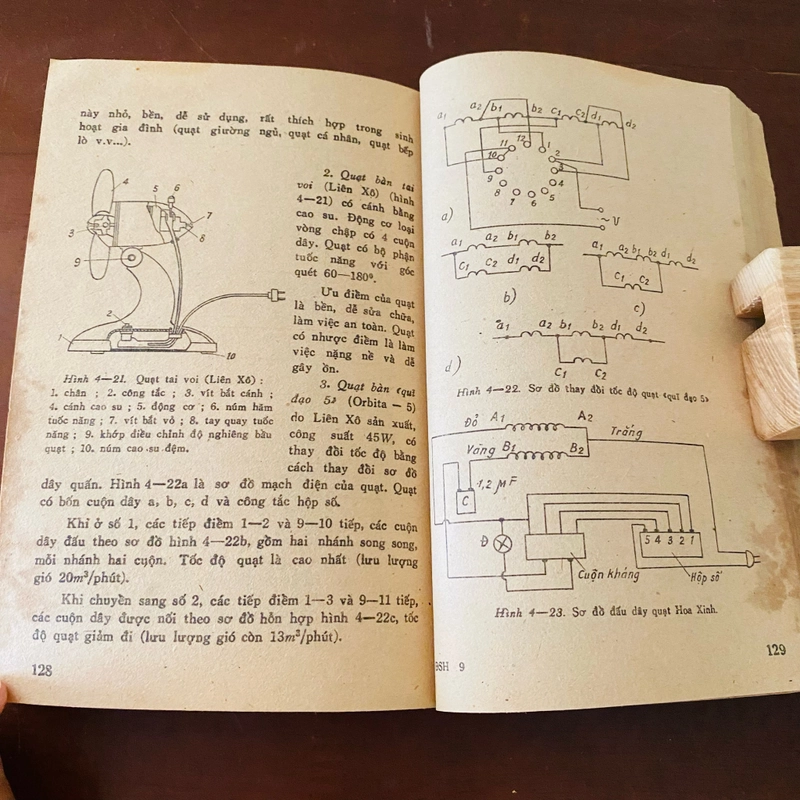 này nhỏ, bền, dễ sử dụng, rất thích hợp trong sinh
hoạt gia đình (quạt giường ngủ, quạt cá nhân, quạt bếp
lò v.v...).
4
5
6
3
7
8
9
2
1
10
Hình 4—21. Quạt tai voi (Liên Xô) :
1. chân ; 2. công tắc ; 3. vít bắt cánh ;
4. cánh cao su ; 5. động cơ ; 6. núm hãm
tuốc năng ; 7. vít bắt vỏ ; 8. tay quay tuốc
năng ; 9. khớp điều chỉnh độ nghiêng bầu
quạt ; 10. núm cao su đệm.
2. Quạt bàn tai
voi (Liên Xô) (hình
4—21) có cánh bằng
cao su. Động cơ loại
vòng chập có 4 cuộn
dây. Quạt có bộ phận
tuốc năng với góc
quét 60—180°.
Ưu điểm của quạt
là bền, dễ sửa chữa,
làm việc an toàn. Quạt
có nhược điểm là làm
việc nặng nề và dễ
gây ồn.
3. Quạt bàn «quĩ
đạo 5» (Orbita — 5)
do Liên Xô sản xuất,
công suất 45W, có
thay đổi tốc độ bằng
cách thay đổi sơ đồ
dây quấn. Hình 4—22a là sơ đồ mạch điện của quạt. Quạt
có bốn cuộn dây a, b, c, d và công tắc hộp số.
Khi ở số 1, các tiếp điểm 1—2 và 9—10 tiếp, các cuộn
dây đấu theo sơ đồ hình 4—22b, gồm hai nhánh song song,
mỗi nhánh hai cuộn. Tốc độ quạt là cao nhất (lưu lượng
gió 20m³/phút).
Khi chuyển sang số 2, các tiếp điểm 1—3 và 9—11 tiếp,
các cuộn dây được nối theo sơ đồ hỗn hợp hình 4—22c, tốc
độ quạt giảm đi (lưu lượng gió còn 13m³/phút).
128
a1 a2 b1 b2 c1 c2 d1 d2
12
11 1
10 2
9 3
8 4
7 6 5
~ U
a)
a1 a2 b1 b2
c1 c2 d1 d2
b)
a1 a2 b1 b2 d1 d2
c1 c2
c)
a1 a2 b1 b2 d1 d2
c1 c2
d)
Hình 4—22. Sơ đồ thay đổi tốc độ quạt «quĩ đạo 5»
Đỏ A1 A2
Trắng
Vàng B1 B2
1,2 µF
C
Đ
5 4 3 2 1
Cuộn kháng
Hộp số
Hình 4—23. Sơ đồ đấu dây quạt Hoa Xinh.
129
ĐSH 9